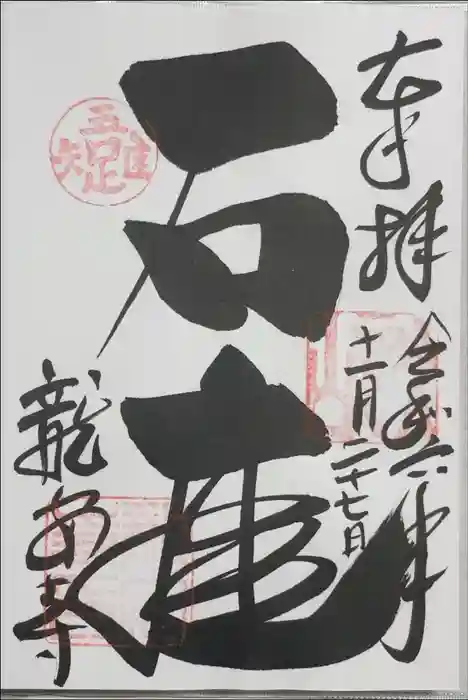 奉拝
令和六年
十一月二十七日
石庭
吾唯足知
龍安寺